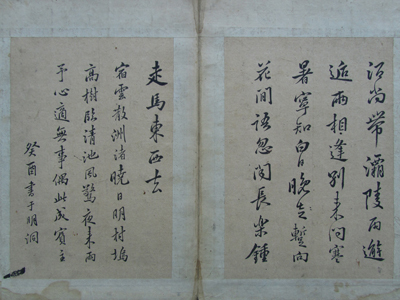 酒尚帶灞陵雨邂
逅兩相逢別來問寒
暑寧知白日晚暫向
花間語忽聞長樂鍾
走馬東西去
宿雲散洲渚曉日明村塢
高樹臨清池風驚夜來雨
予心適無事偶此成賓主
癸酉書于明洞